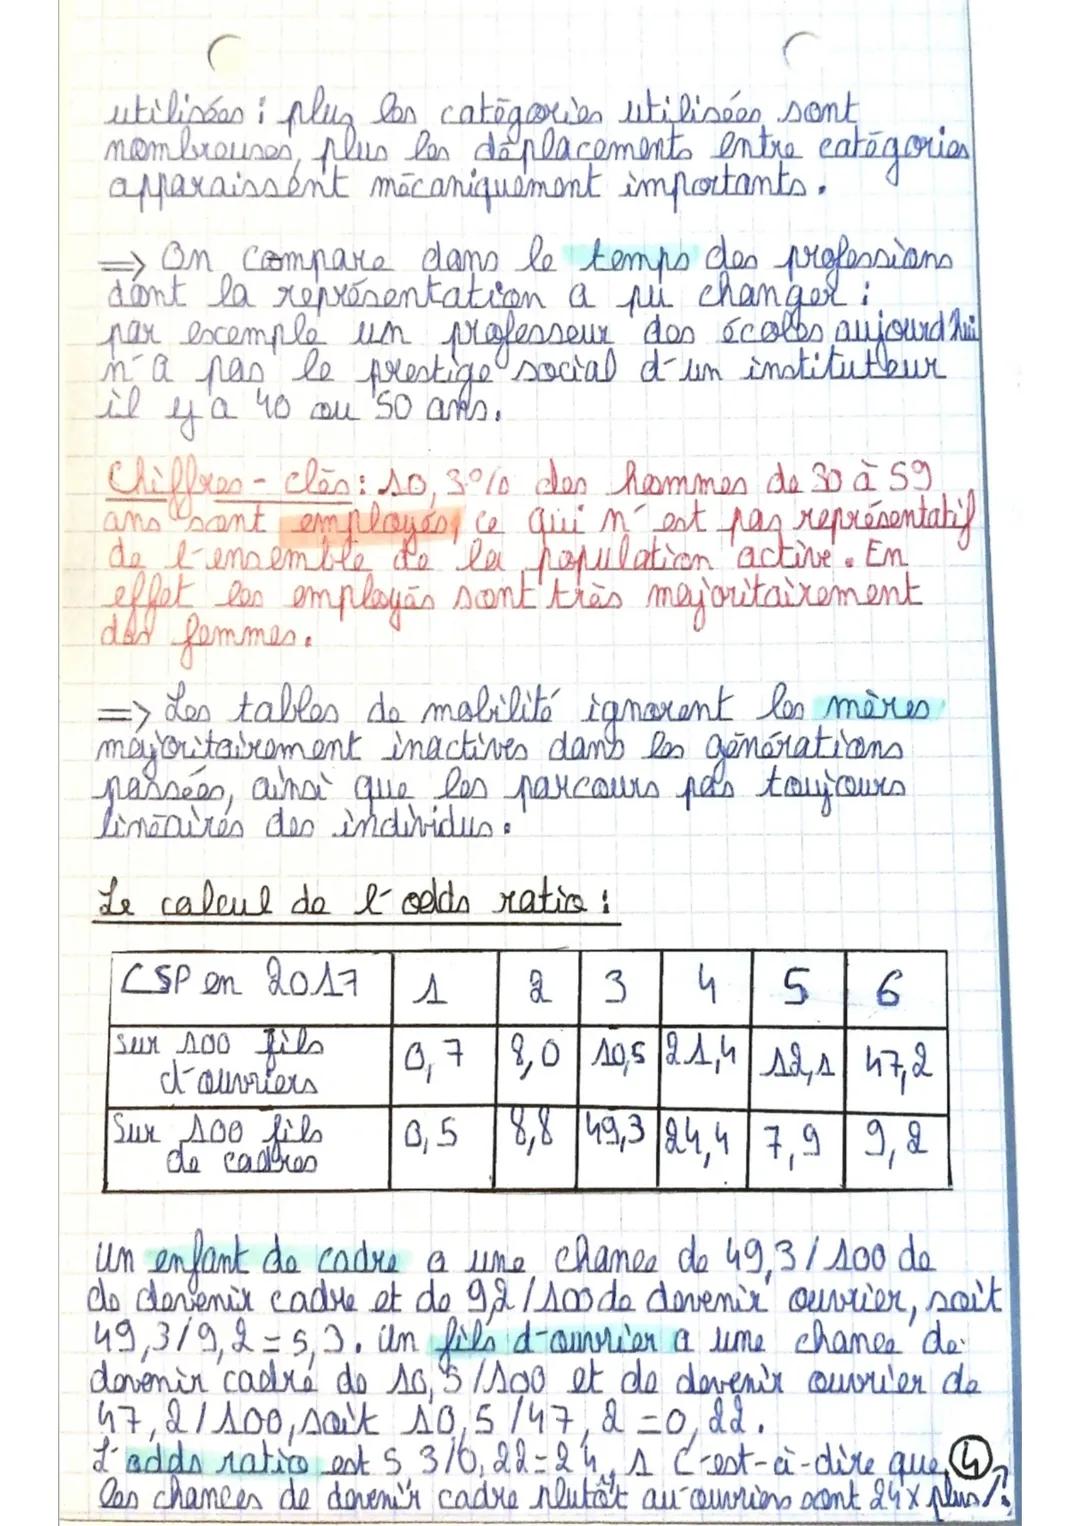 utilisées : plus les catégories utilisées sont
nombreuses, plus les déplacements entre catégories
apparaissent mécaniquement importants.
=> On compare dans le temps des professions
dont la représentation a pu changer :
par exemple un professeur des écoles aujourd'hui
n'a pas le prestige social d'un instituteur
il y a 40 ou 50 ans.
Chiffres-clés : 10,3% des hommes de 30 à 59
ans sont employés, ce qui n'est pas représentatif
de l'ensemble de la population active. En
effet les employés sont très majoritairement
des femmes.
=> Les tables de mobilité ignorent les mères
majoritairement inactives dans les générations
passées, ainsi que les parcours pas toujours
linéaires des individus.
Le calcul de l'odds ratio :
CSP en 2017 1 2 3 4 5 6
Sur 100 fils 0,7 8,0 10,5 21,4 12,1 47,2
d'ouvriers
Sur 100 fils 0,5 8,8 49,3 24,4 7,9 9,2
de cadres
Un enfant de cadre a une chance de 49,3/100 de
de devenir cadre et de 9,2/100 de devenir ouvrier, soit
49,3/9,2 = 5,3. Un fils d'ouvrier a une chance de
devenir cadre de 10,5/100 et de devenir ouvrier de
47,2/100, soit 10,5/47,2 = 0,22.
L'odds ratio est 5,3/0,22 = 24,1 C'est-à-dire que 4
les chances de devenir cadre plutôt qu'ouvriers sont 24x plus